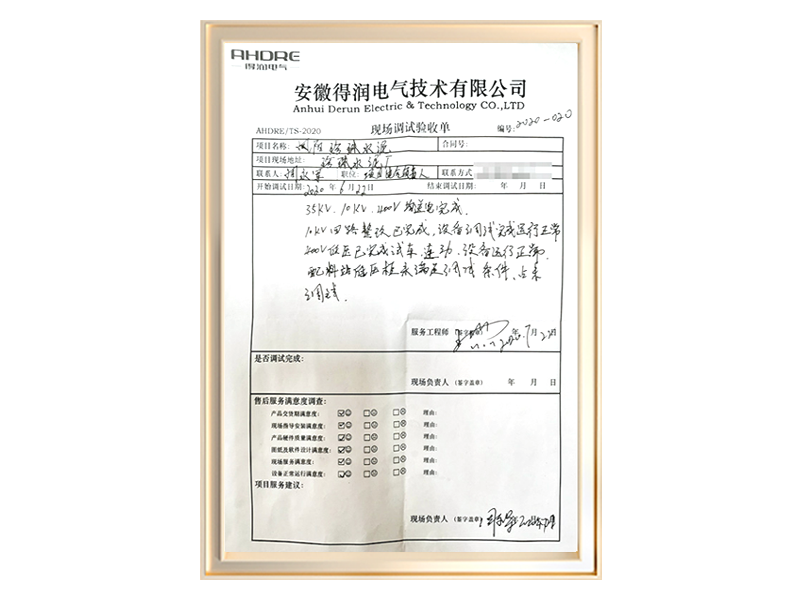 AHDRE
得润电气
安徽得润电气技术有限公司
Anhui Derun Electric & Technology CO.,LTD
AHDRE/TS-2020 现场调试验收单 编号:2020-020
项目名称: 凤阳珍珠水泥 合同号:
项目现场地址: 珍珠水泥厂
联系人: 职位: 项目 负责人 联系方式
开始调试日期: 2020 年 6 月 22 日 结束调试日期: 年 月 日
35KV、10KV、400V 均送电完成.
10KV回路整改已完成,设备调试完成运行正常
400V低压已完成试车、连动、设备运行正常.
配料站低压柜未满足调试条件、占未
调试.
服务工程师 (签字盖章) 2020年7月22日
是否调试完成:
现场负责人 (签字盖章) 年 月 日
售后服务满意度调查:
产品交货期满意度: ☑☺ □☺ □☹ 理由:
现场指导安装满意度: ☑☺ □☺ □☹ 理由:
产品硬件质量满意度: ☑☺ □☺ □☹ 理由:
图纸及软件设计满意度: ☑☺ □☺ □☹ 理由:
现场服务满意度: ☑☺ □☺ □☹ 理由:
设备正常运行满意度: ☑☺ □☺ □☹ 理由:
项目服务建议:
现场负责人 (签字盖章)